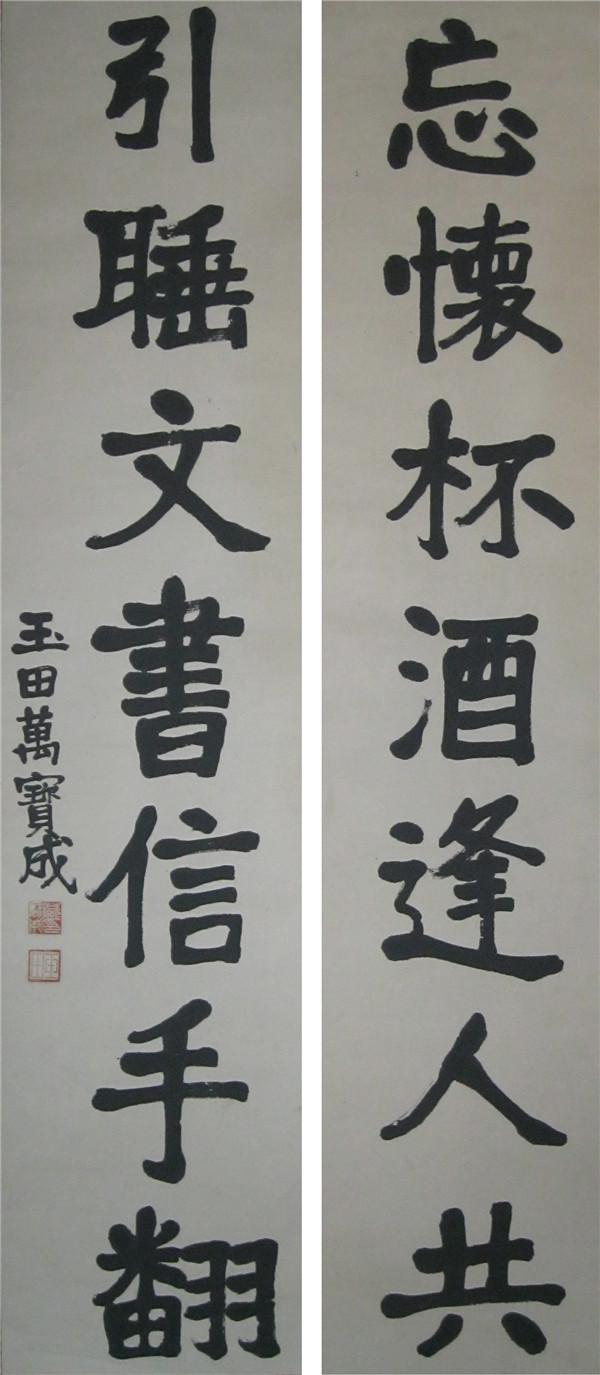 忘懷杯酒逢人共
引睡文書信手翻
玉田萬寶成